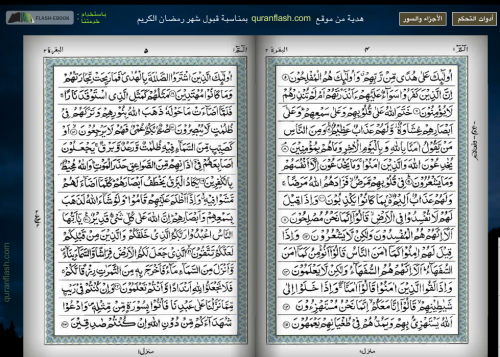 هدية من موقع quranflash.com بمناسبة قبول شهر رمضان الكريم
أدوات التحكم
الأجزاء والسور
باستخدام خدمتنا
FLASH-EBOOK
البقرة ٢
٤
الٓمّٓ ١
أُولَٰئِكَ عَلَىٰ هُدًى مِّن رَّبِّهِمْ وَأُولَٰئِكَ هُمُ الْمُفْلِحُونَ ٥
إِنَّ الَّذِينَ كَفَرُوا سَوَاءٌ عَلَيْهِمْ ءَأَنذَرْتَهُمْ أَمْ لَمْ تُنذِرْهُمْ
لَا يُؤْمِنُونَ ٦ خَتَمَ اللَّهُ عَلَىٰ قُلُوبِهِمْ وَعَلَىٰ سَمْعِهِمْ وَعَلَىٰ
أَبْصَارِهِمْ غِشَاوَةٌ وَلَهُمْ عَذَابٌ عَظِيمٌ ٧ وَمِنَ النَّاسِ
مَن يَقُولُ آمَنَّا بِاللَّهِ وَبِالْيَوْمِ الْآخِرِ وَمَا هُم بِمُؤْمِنِينَ ٨
يُخَادِعُونَ اللَّهَ وَالَّذِينَ آمَنُوا وَمَا يَخْدَعُونَ إِلَّا أَنفُسَهُمْ
وَمَا يَشْعُرُونَ ٩ فِي قُلُوبِهِم مَّرَضٌ فَزَادَهُمُ اللَّهُ مَرَضًا
وَلَهُمْ عَذَابٌ أَلِيمٌ بِمَا كَانُوا يَكْذِبُونَ ١٠ وَإِذَا قِيلَ
لَهُمْ لَا تُفْسِدُوا فِي الْأَرْضِ قَالُوا إِنَّمَا نَحْنُ مُصْلِحُونَ ١١
أَلَا إِنَّهُمْ هُمُ الْمُفْسِدُونَ وَلَٰكِن لَّا يَشْعُرُونَ ١٢ وَإِذَا
قِيلَ لَهُمْ آمِنُوا كَمَا آمَنَ النَّاسُ قَالُوا أَنُؤْمِنُ كَمَا آمَنَ
السُّفَهَاءُ أَلَا إِنَّهُمْ هُمُ السُّفَهَاءُ وَلَٰكِن لَّا يَعْلَمُونَ ١٣
وَإِذَا لَقُوا الَّذِينَ آمَنُوا قَالُوا آمَنَّا وَإِذَا خَلَوْا إِلَىٰ
شَيَاطِينِهِمْ قَالُوا إِنَّا مَعَكُمْ إِنَّمَا نَحْنُ مُسْتَهْزِءُونَ ١٤
اللَّهُ يَسْتَهْزِئُ بِهِمْ وَيَمُدُّهُمْ فِي طُغْيَانِهِمْ يَعْمَهُونَ ١٥
منزل١
الٓمّٓ ١
٥
البقرة ٢
أُولَٰئِكَ الَّذِينَ اشْتَرَوُا الضَّلَالَةَ بِالْهُدَىٰ فَمَا رَبِحَت تِّجَارَتُهُمْ
وَمَا كَانُوا مُهْتَدِينَ ١٦ مَثَلُهُمْ كَمَثَلِ الَّذِي اسْتَوْقَدَ نَارًا
فَلَمَّا أَضَاءَتْ مَا حَوْلَهُ ذَهَبَ اللَّهُ بِنُورِهِمْ وَتَرَكَهُمْ فِي
ظُلُمَاتٍ لَّا يُبْصِرُونَ ١٧ صُمٌّ بُكْمٌ عُمْيٌ فَهُمْ لَا يَرْجِعُونَ ١٨ أَوْ
كَصَيِّبٍ مِّنَ السَّمَاءِ فِيهِ ظُلُمَاتٌ وَرَعْدٌ وَبَرْقٌ يَجْعَلُونَ
أَصَابِعَهُمْ فِي آذَانِهِم مِّنَ الصَّوَاعِقِ حَذَرَ الْمَوْتِ وَاللَّهُ مُحِيطٌ
بِالْكَافِرِينَ ١٩ يَكَادُ الْبَرْقُ يَخْطَفُ أَبْصَارَهُمْ كُلَّمَا أَضَاءَ لَهُم
مَّشَوْا فِيهِ وَإِذَا أَظْلَمَ عَلَيْهِمْ قَامُوا وَلَوْ شَاءَ اللَّهُ لَذَهَبَ
بِسَمْعِهِمْ وَأَبْصَارِهِمْ إِنَّ اللَّهَ عَلَىٰ كُلِّ شَيْءٍ قَدِيرٌ ٢٠ يَا أَيُّهَا
النَّاسُ اعْبُدُوا رَبَّكُمُ الَّذِي خَلَقَكُمْ وَالَّذِينَ مِن قَبْلِكُمْ
لَعَلَّكُمْ تَتَّقُونَ ٢١ الَّذِي جَعَلَ لَكُمُ الْأَرْضَ فِرَاشًا وَالسَّمَاءَ بِنَاءً
وَأَنزَلَ مِنَ السَّمَاءِ مَاءً فَأَخْرَجَ بِهِ مِنَ الثَّمَرَاتِ رِزْقًا لَّكُمْ
فَلَا تَجْعَلُوا لِلَّهِ أَندَادًا وَأَنتُمْ تَعْلَمُونَ ٢٢ وَإِن كُنتُمْ فِي رَيْبٍ
مِّمَّا نَزَّلْنَا عَلَىٰ عَبْدِنَا فَأْتُوا بِسُورَةٍ مِّن مِّثْلِهِ وَادْعُوا
شُهَدَاءَكُم مِّن دُونِ اللَّهِ إِن كُنتُمْ صَادِقِينَ ٢٣
منزل١
quranflash.com